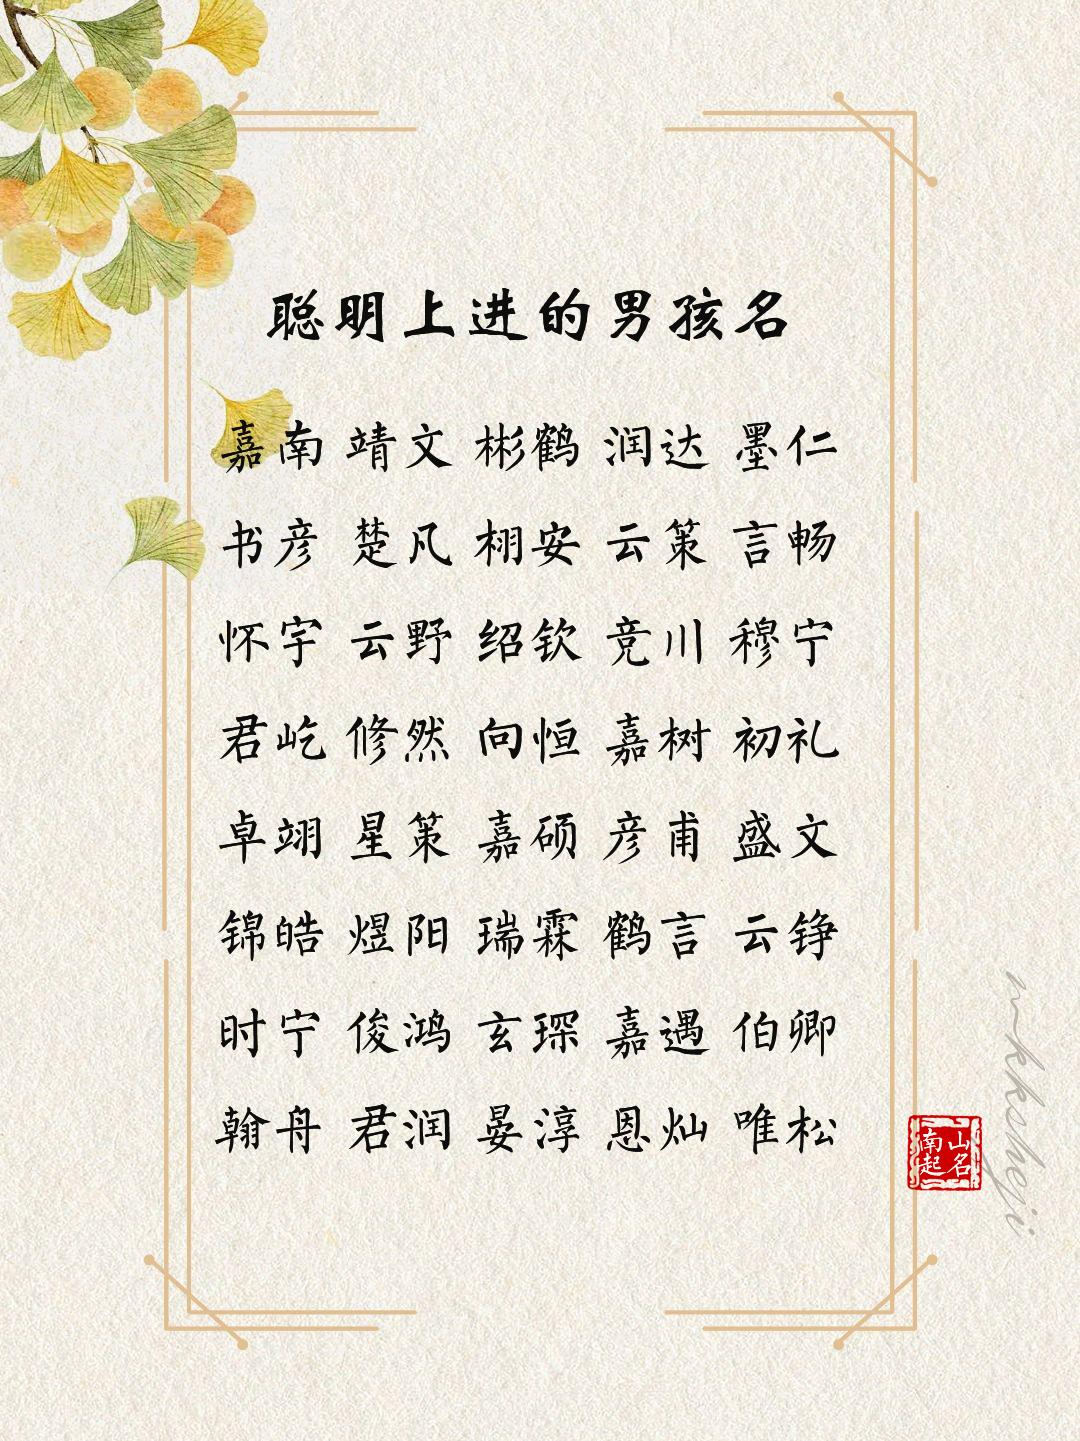 聪明上进的男孩名
嘉南 靖文 彬鹤 润达 墨仁
书彦 楚凡 栩安 云策 言畅
怀宇 云野 绍钦 竞川 穆宁
君屹 修然 向恒 嘉树 初礼
卓翊 星策 嘉硕 彦甫 盛文
锦皓 煜阳 瑞霖 鹤言 云铮
时宁 俊鸿 玄琛 嘉遇 伯卿
翰舟 君润 晏淳 恩灿 唯松
山名
南起
mkksheji